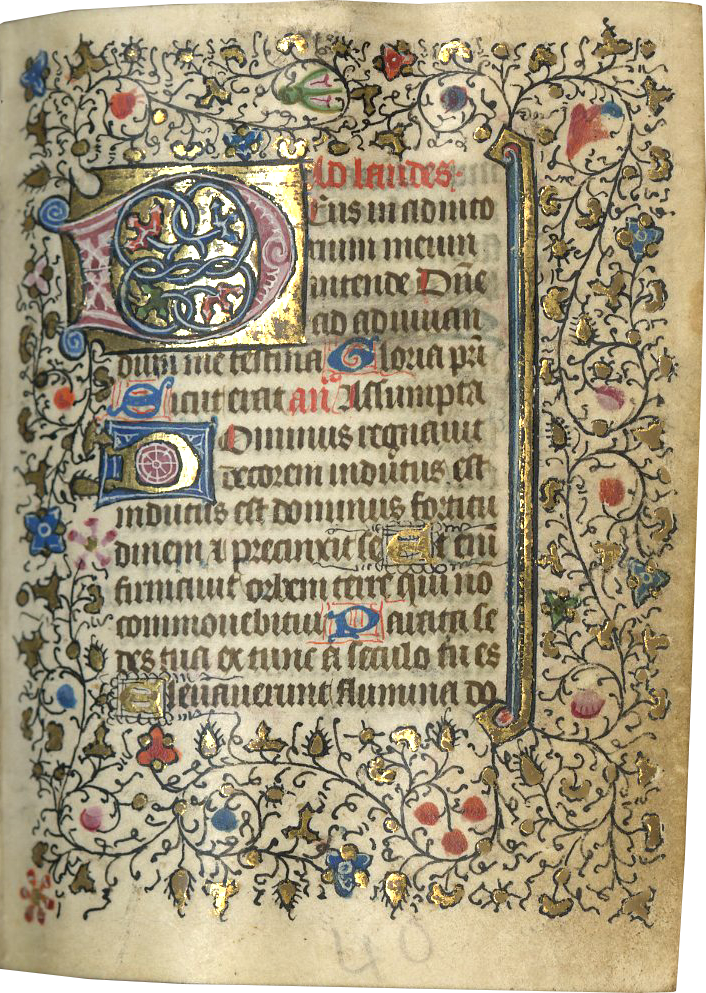 Ad laudes.
Deus in adiuto
rium meum
intende Dñe
ad adiuuan
dum me festina Gloria pri
Sicut erat añ Assumpta
Dominus regnauit
decorem indutus est
indutus est dominus fortitu
dinem ⁊ precinxit se Et eni
firmauit orbem terre qui no
commouebitur Parata se
des tua ex tunc a seculo tu es
Eleuauerunt flumina do
40